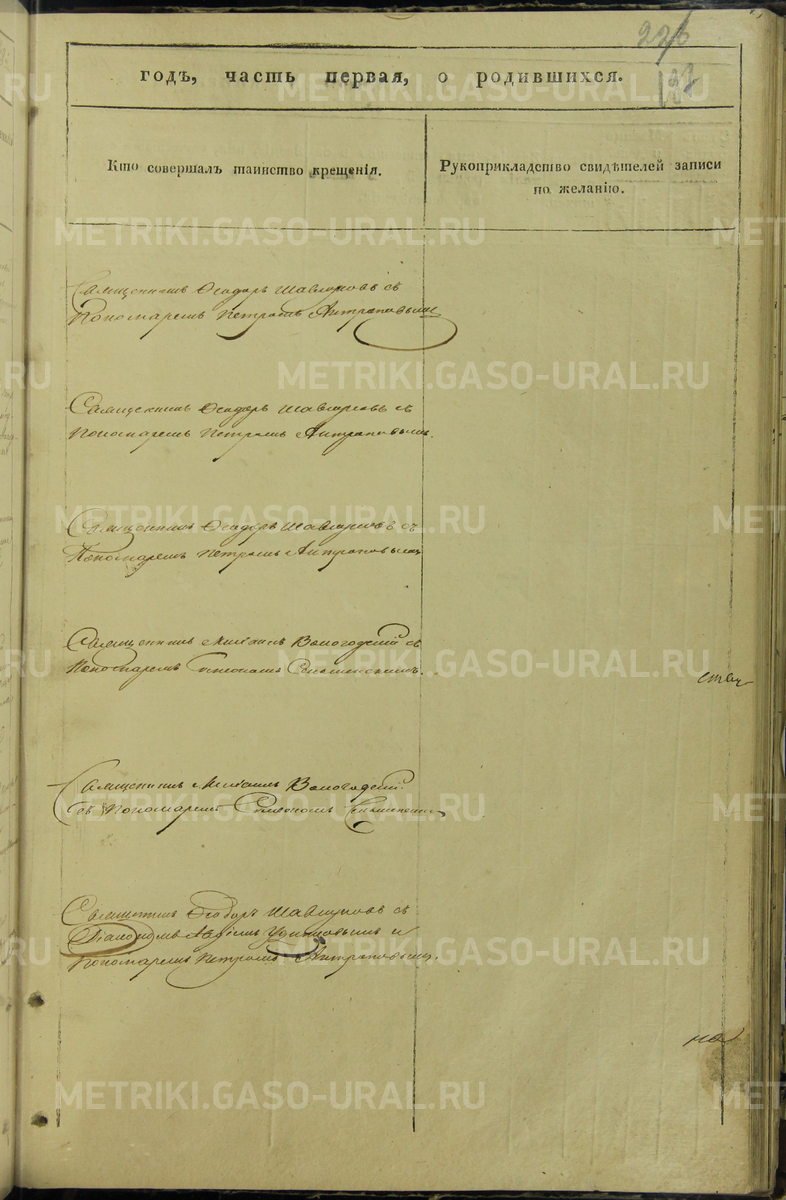 226
годъ, часть первая, о родившихся.
Кто совершалъ таинство крещенія.
Рукоприкладство свидѣтелей записи
по желанію.
Священникъ Ѳеодоръ Шавкуновъ съ
Пономаремъ Петромъ Антроповымъ
Священникъ Ѳеодоръ Шавкуновъ съ
Пономаремъ Петромъ Антроповымъ.
Священникъ Ѳеодоръ Шавкуновъ съ
Пономаремъ Петромъ Антроповымъ
Священникъ Михаилъ Вологодскій съ
Пономаремъ Симеономъ
Священникъ Михаилъ Вологодскій
съ Пономаремъ Симеономъ
Священникъ Ѳеодоръ Шавкуновъ съ
Діакономъ и
Пономаремъ Петромъ Антроповымъ.
METRIKI.GASO-URAL.RU